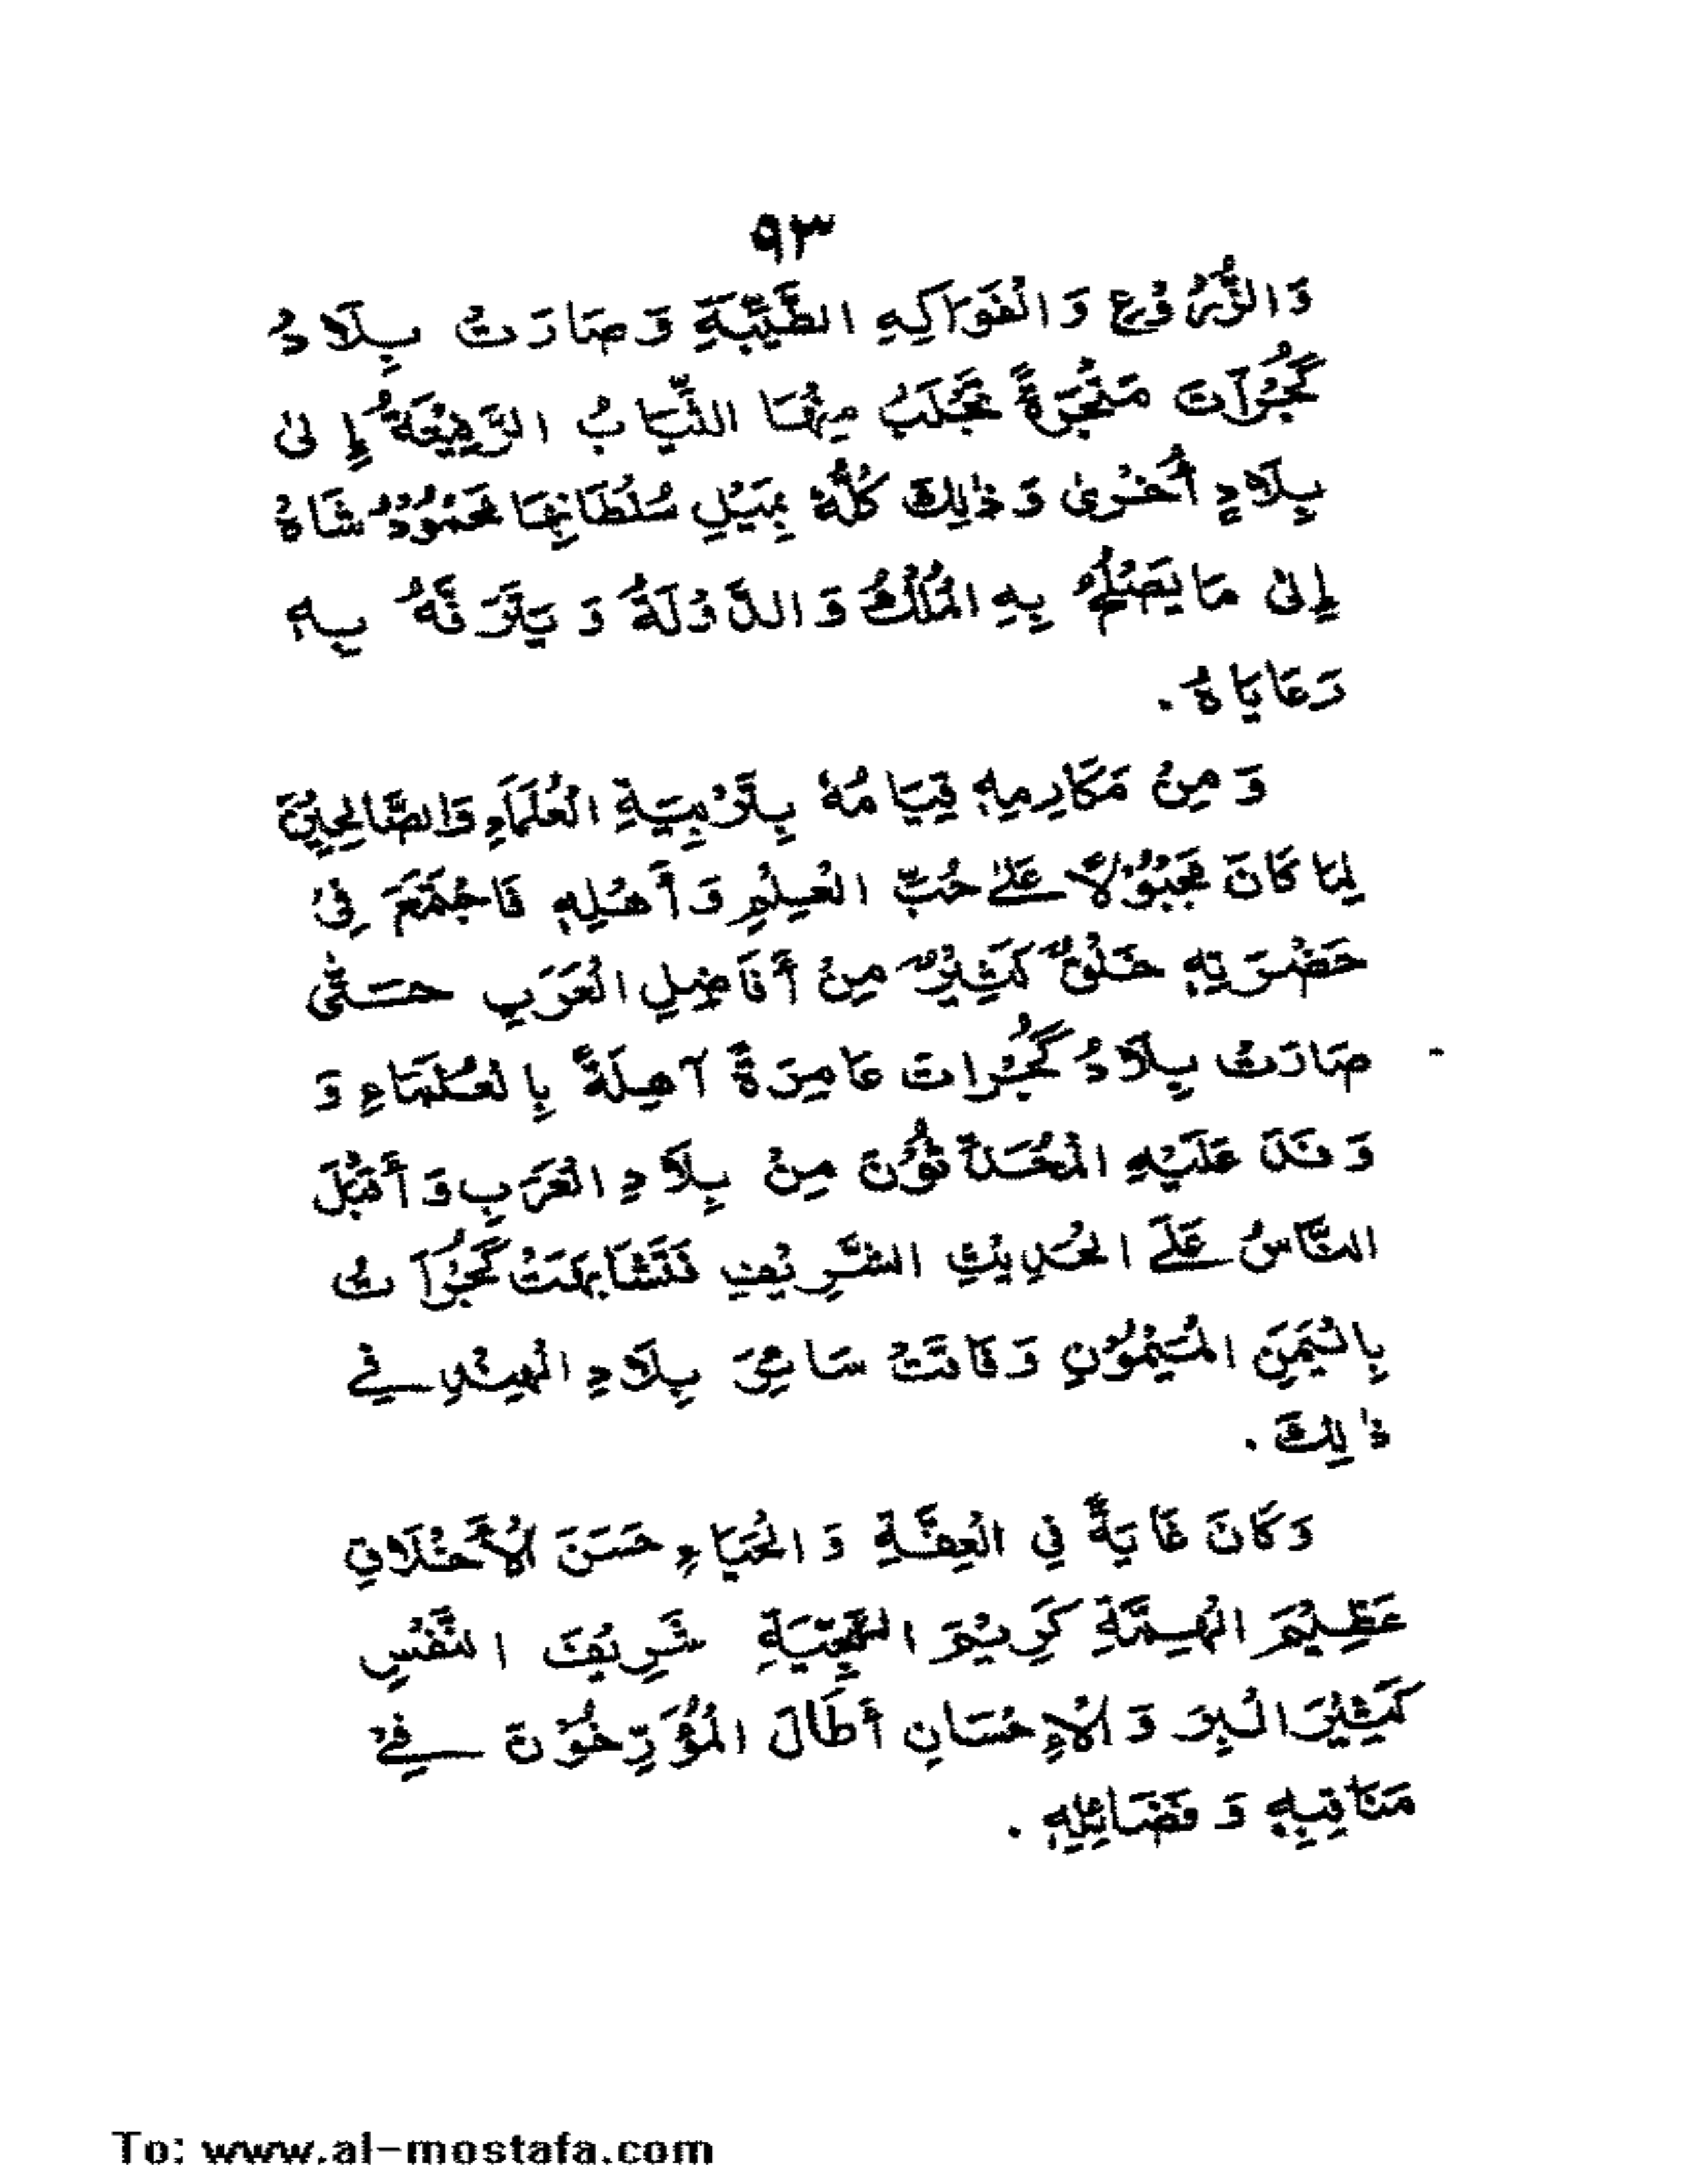 ٩٣
وَالزُّرُوْعِ وَالْفَوَاكِهِ الطَّيِّبَةِ وَصَارَتْ بِلَادُ
گُجُرَاتَ مَتْجَرَةً تُجْلَبُ مِنْهَا الثِّيَابُ الرَّفِيْعَةُ إِلىٰ
بِلَادٍ أُخْرىٰ وَذٰلِكَ كُلُّهُ بِمَيْلِ سُلْطَانِهَا مَحْمُوْدْ شَاهْ
إِلىٰ مَا يَصْلُحُ بِهِ الْمُلْكُ وَالدَّوْلَةُ وَيَتَرَفَّهُ بِهِ
رَعَايَاهُ.
وَمِنْ مَكَارِمِهِ قِيَامُهُ بِتَرْبِيَةِ الْعُلَمَاءِ وَالصَّالِحِيْنَ
لِمَا كَانَ مَجْبُوْلًا عَلىٰ حُبِّ الْعِلْمِ وَأَهْلِهِ فَاجْتَمَعَ فِيْ
حَضْرَتِهِ خَلْقٌ كَثِيْرٌ مِنْ أَفَاضِلِ الْعَرَبِ حَتّٰى
صَارَتْ بِلَادُ گُجُرَاتَ عَامِرَةً آهِلَةً بِالْعُلَمَاءِ وَ
وَفَدَ عَلَيْهِ الْمُحَدِّثُوْنَ مِنْ بِلَادِ الْعَرَبِ وَأَقْبَلَ
النَّاسُ عَلَى الْحَدِيْثِ الشَّرِيْفِ فَتَشَابَهَتْ گُجُرَاتُ
بِالْيَمَنِ الْمَيْمُوْنِ وَفَاقَتْ سَائِرَ بِلَادِ الْهِنْدِ فِيْ
ذٰلِكَ.
وَكَانَ غَايَةً فِي الْعِفَّةِ وَالْحَيَاءِ حَسَنَ الْأَخْلَاقِ
عَظِيْمَ الْهِمَّةِ كَرِيْمَ السَّجِيَّةِ شَرِيْفَ النَّفْسِ
كَثِيْرَ الْبِرِّ وَالْإِحْسَانِ أَطَالَ الْمُؤَرِّخُوْنَ فِيْ
مَنَاقِبِهِ وَفَضَائِلِهِ.
To: www.al-mostafa.com